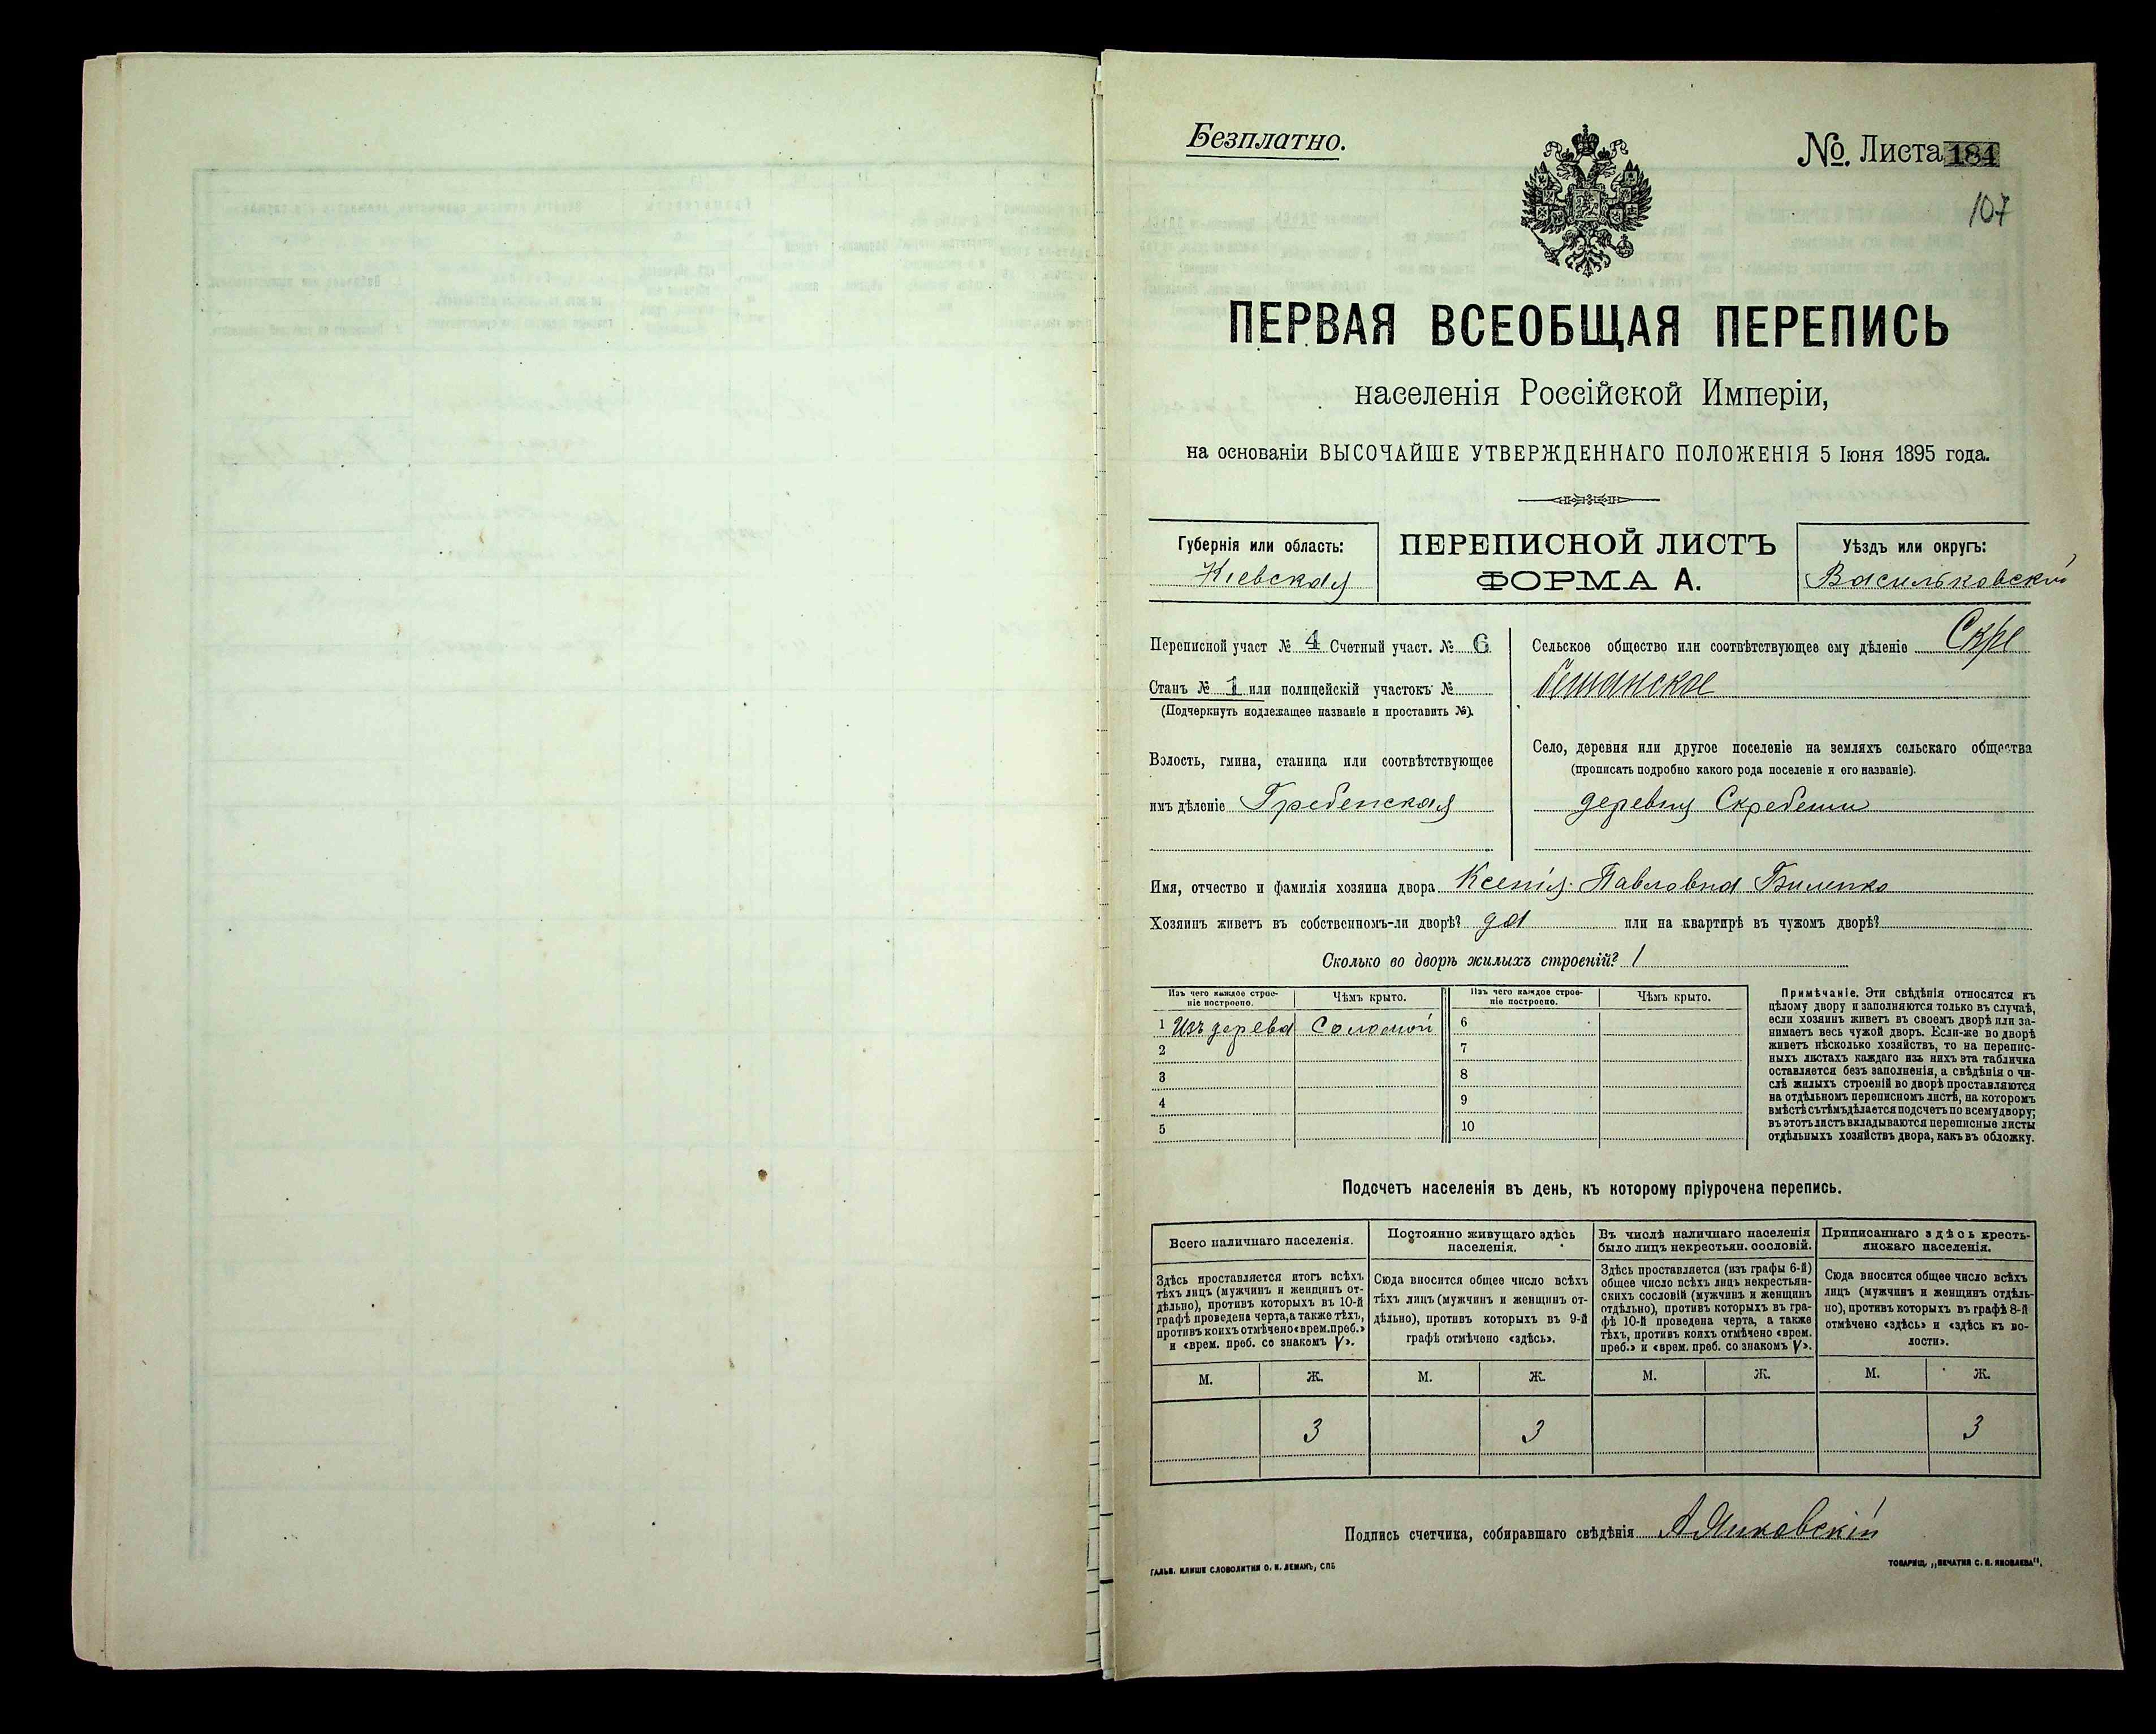 Безплатно.
№. Листа 184
107
ПЕРВАЯ ВСЕОБЩАЯ ПЕРЕПИСЬ
населенія Россійской Имперіи,
на основаніи ВЫСОЧАЙШЕ УТВЕРЖДЕННАГО ПОЛОЖЕНІЯ 5 Іюня 1895 года.
Губернія или область:
Кіевская
ПЕРЕПИСНОЙ ЛИСТЪ
ФОРМА А.
Уѣздъ или округъ:
Васильковскій
Переписной участ № 4 Счетный участ. № 6
Станъ № 1 или полицейскій участокъ №
(Подчеркнуть подлежащее названіе и проставить №).
Волость, гмина, станица или соотвѣтствующее
имъ дѣленіе Гребенская
Сельское общество или соотвѣтствующее ему дѣленіе Скре
бешанское
Село, деревня или другое поселеніе на земляхъ сельскаго общества
(прописать подробно какого рода поселеніе и его названіе).
деревня Скребеши
Имя, отчество и фамилія хозяина двора Ксенія Павловна Биленко
Хозяинъ живетъ въ собственномъ-ли дворѣ? да или на квартирѣ въ чужомъ дворѣ?
Сколько во дворѣ жилыхъ строеній? 1
Изъ чего каждое строе-
ніе построено.
Чѣмъ крыто.
Изъ чего каждое строе-
ніе построено.
Чѣмъ крыто.
1 Изъ дерева Соломой 6
2 7
3 8
4 9
5 10
Примѣчаніе. Эти свѣдѣнія относятся къ
цѣлому двору и заполняются только въ случаѣ,
если хозяинъ живетъ въ своемъ дворѣ или за-
нимаетъ весь чужой дворъ. Если-же во дворѣ
живетъ нѣсколько хозяйствъ, то на перепис-
ныхъ листахъ каждаго изъ нихъ эта табличка
оставляется безъ заполненія, а свѣдѣнія о чи-
слѣ жилыхъ строеній во дворѣ проставляются
на отдѣльномъ переписномъ листѣ, на которомъ
вмѣстѣ съ тѣмъ дѣлается подсчетъ по всему двору;
въ этотъ листъ вкладываются переписные листы
отдѣльныхъ хозяйствъ двора, какъ въ обложку.
Подсчетъ населенія въ день, къ которому пріурочена перепись.
Всего наличнаго населенія.
Здѣсь проставляется итогъ всѣхъ
тѣхъ лицъ (мужчинъ и женщинъ от-
дѣльно), противъ которыхъ въ 10-й
графѣ проведена черта, а также тѣхъ,
противъ коихъ отмѣчено «врем. преб.»
и «врем. преб. со знакомъ V».
М. Ж.
3
Постоянно живущаго здѣсь
населенія.
Сюда вносится общее число всѣхъ
тѣхъ лицъ (мужчинъ и женщинъ от-
дѣльно), противъ которыхъ въ 9-й
графѣ отмѣчено «здѣсь».
М. Ж.
3
Въ числѣ наличнаго населенія
было лицъ некрестьян. сословій.
Здѣсь проставляется (изъ графы 6-й)
общее число всѣхъ лицъ некрестьян-
скихъ сословій (мужчинъ и женщинъ
отдѣльно), противъ которыхъ въ гра-
фѣ 10-й проведена черта, а также
тѣхъ, противъ коихъ отмѣчено «врем.
преб.» и «врем. преб. со знакомъ V».
М. Ж.
Приписаннаго здѣсь кресть-
янскаго населенія.
Сюда вносится общее число всѣхъ
лицъ (мужчинъ и женщинъ отдѣль-
но), противъ которыхъ въ графѣ 8-й
отмѣчено «здѣсь» и «здѣсь къ во-
лости».
М. Ж.
3
Подпись счетчика, собиравшаго свѣдѣнія
ГАЛЬВ. КЛИШЕ СЛОВОЛИТНИ О. И. ЛЕМАНЪ, СПБ
ТОВАРИЩ. „ПЕЧАТНЯ С. П. ЯКОВЛЕВА".